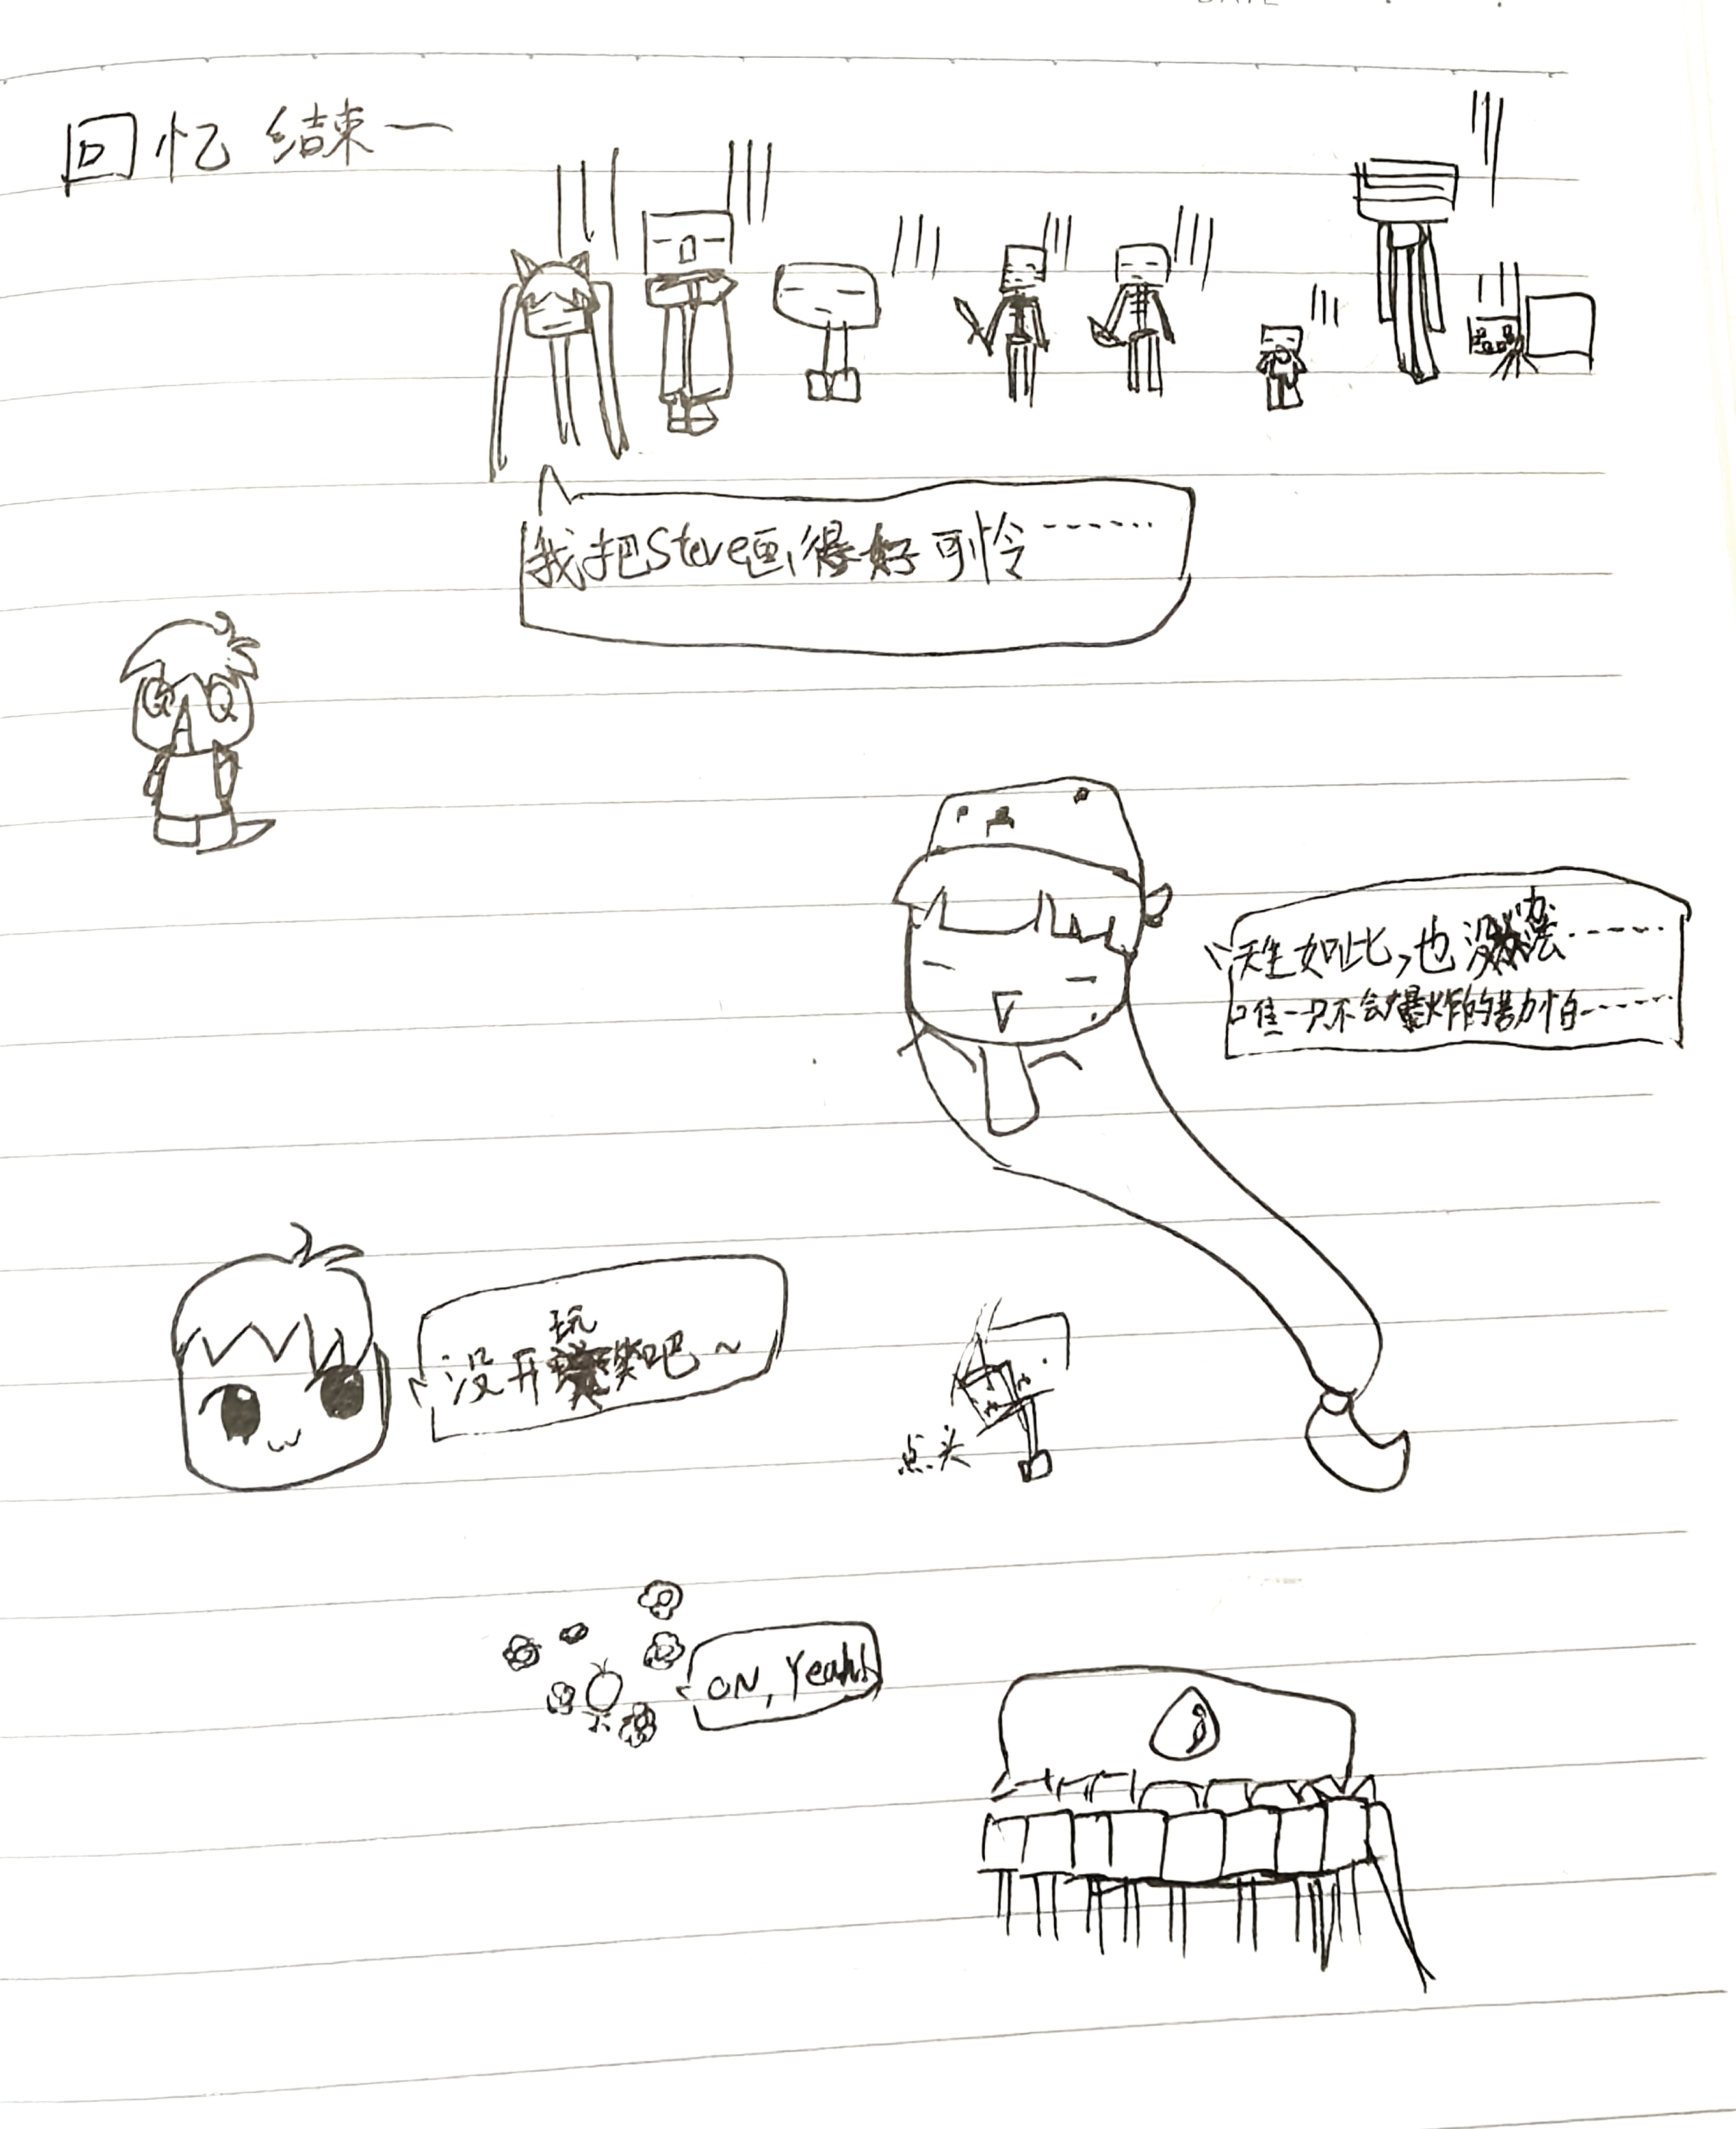 回忆结束一
我把Steve画得好可怜……
天生如此,也没办法……
唯一只不会爆炸的苦力怕……
没开玩笑吧~
点头
ON,Yeah!